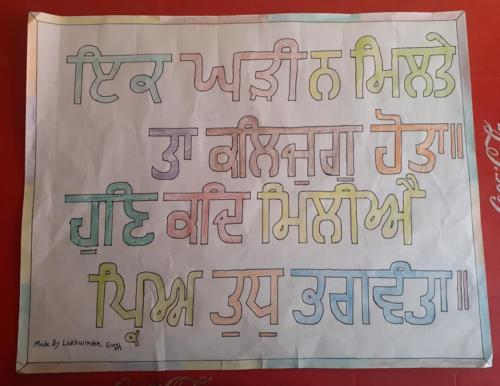 ਇਕ ਘੜੀ ਨ ਮਿਲਤੇ
ਤਾ ਕਲਿਜੁਗੁ ਹੋਤਾ॥
ਹੁਣਿ ਕਦਿ ਮਿਲੀਐ
ਪ੍ਰਿਅ ਤੁਧੁ ਭਗਵੰਤਾ॥
Made By Lakhwinder Singh